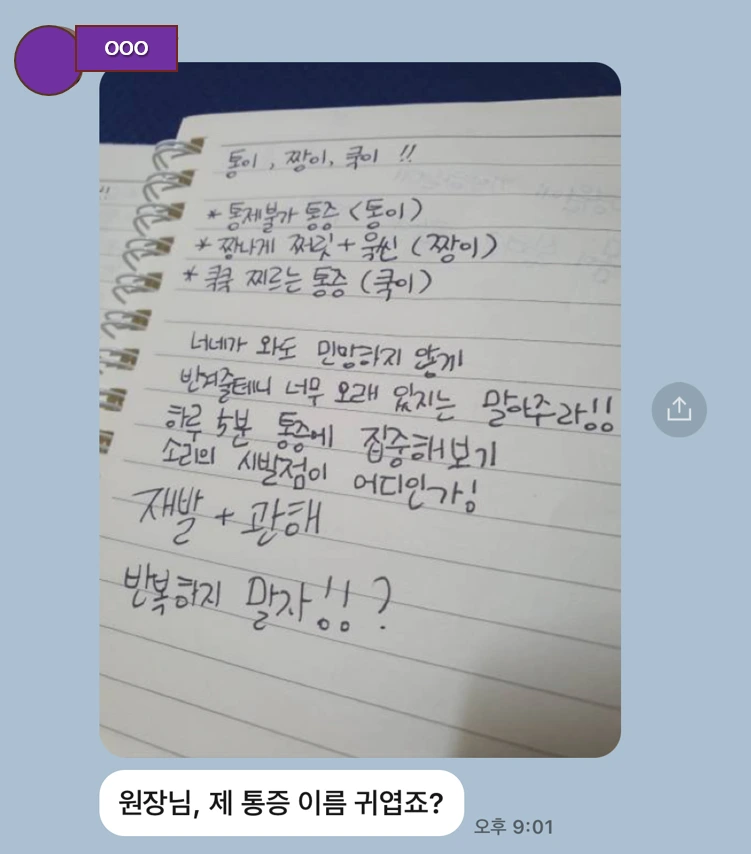 OOO
통이, 짱이, 쿡이 !!
* 통제불가 통증 (통이)
* 짱나게 쩌릿 + 욱씬 (짱이)
* 쿡쿡 찌르는 통증 (쿡이)
너네가 와도 민망하지 않게
반겨줄테니 너무 오래 있지는 말아주라!!
하루 5분 통증에 집중해보기
소리의 시발점이 어디인가!
재발 + 관해
반복하지 말자!!?
원장님, 제 통증 이름 귀엽죠?
오후 9:01